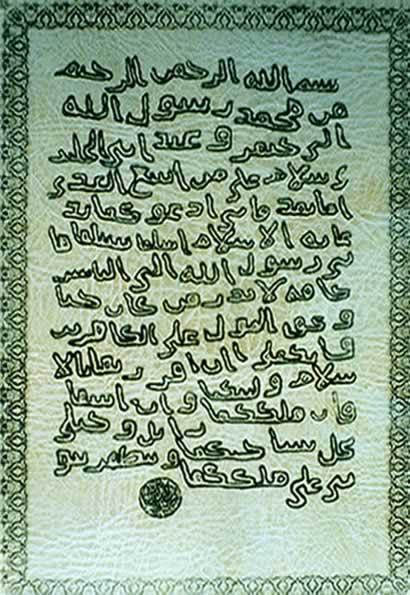 بسم الله الرحمن الرحيم
من محمد رسول الله
الى جيفر و عبد ابني الجلند
و سلام على من اتبع الهدى
اما بعد فاني ادعوكما بد
عاية الاسلام اسلما تسلما فا
ني رسول الله الى الناس
كافة لانذر من كان حيا
و يحق القول على الكافرين
فانكما ان اقررتما بالا
سلام وليتكما وان ابيتما
فان ملككما زايل و خيلي
تحل بساحتكما وتظهر نبو
تي على ملككما